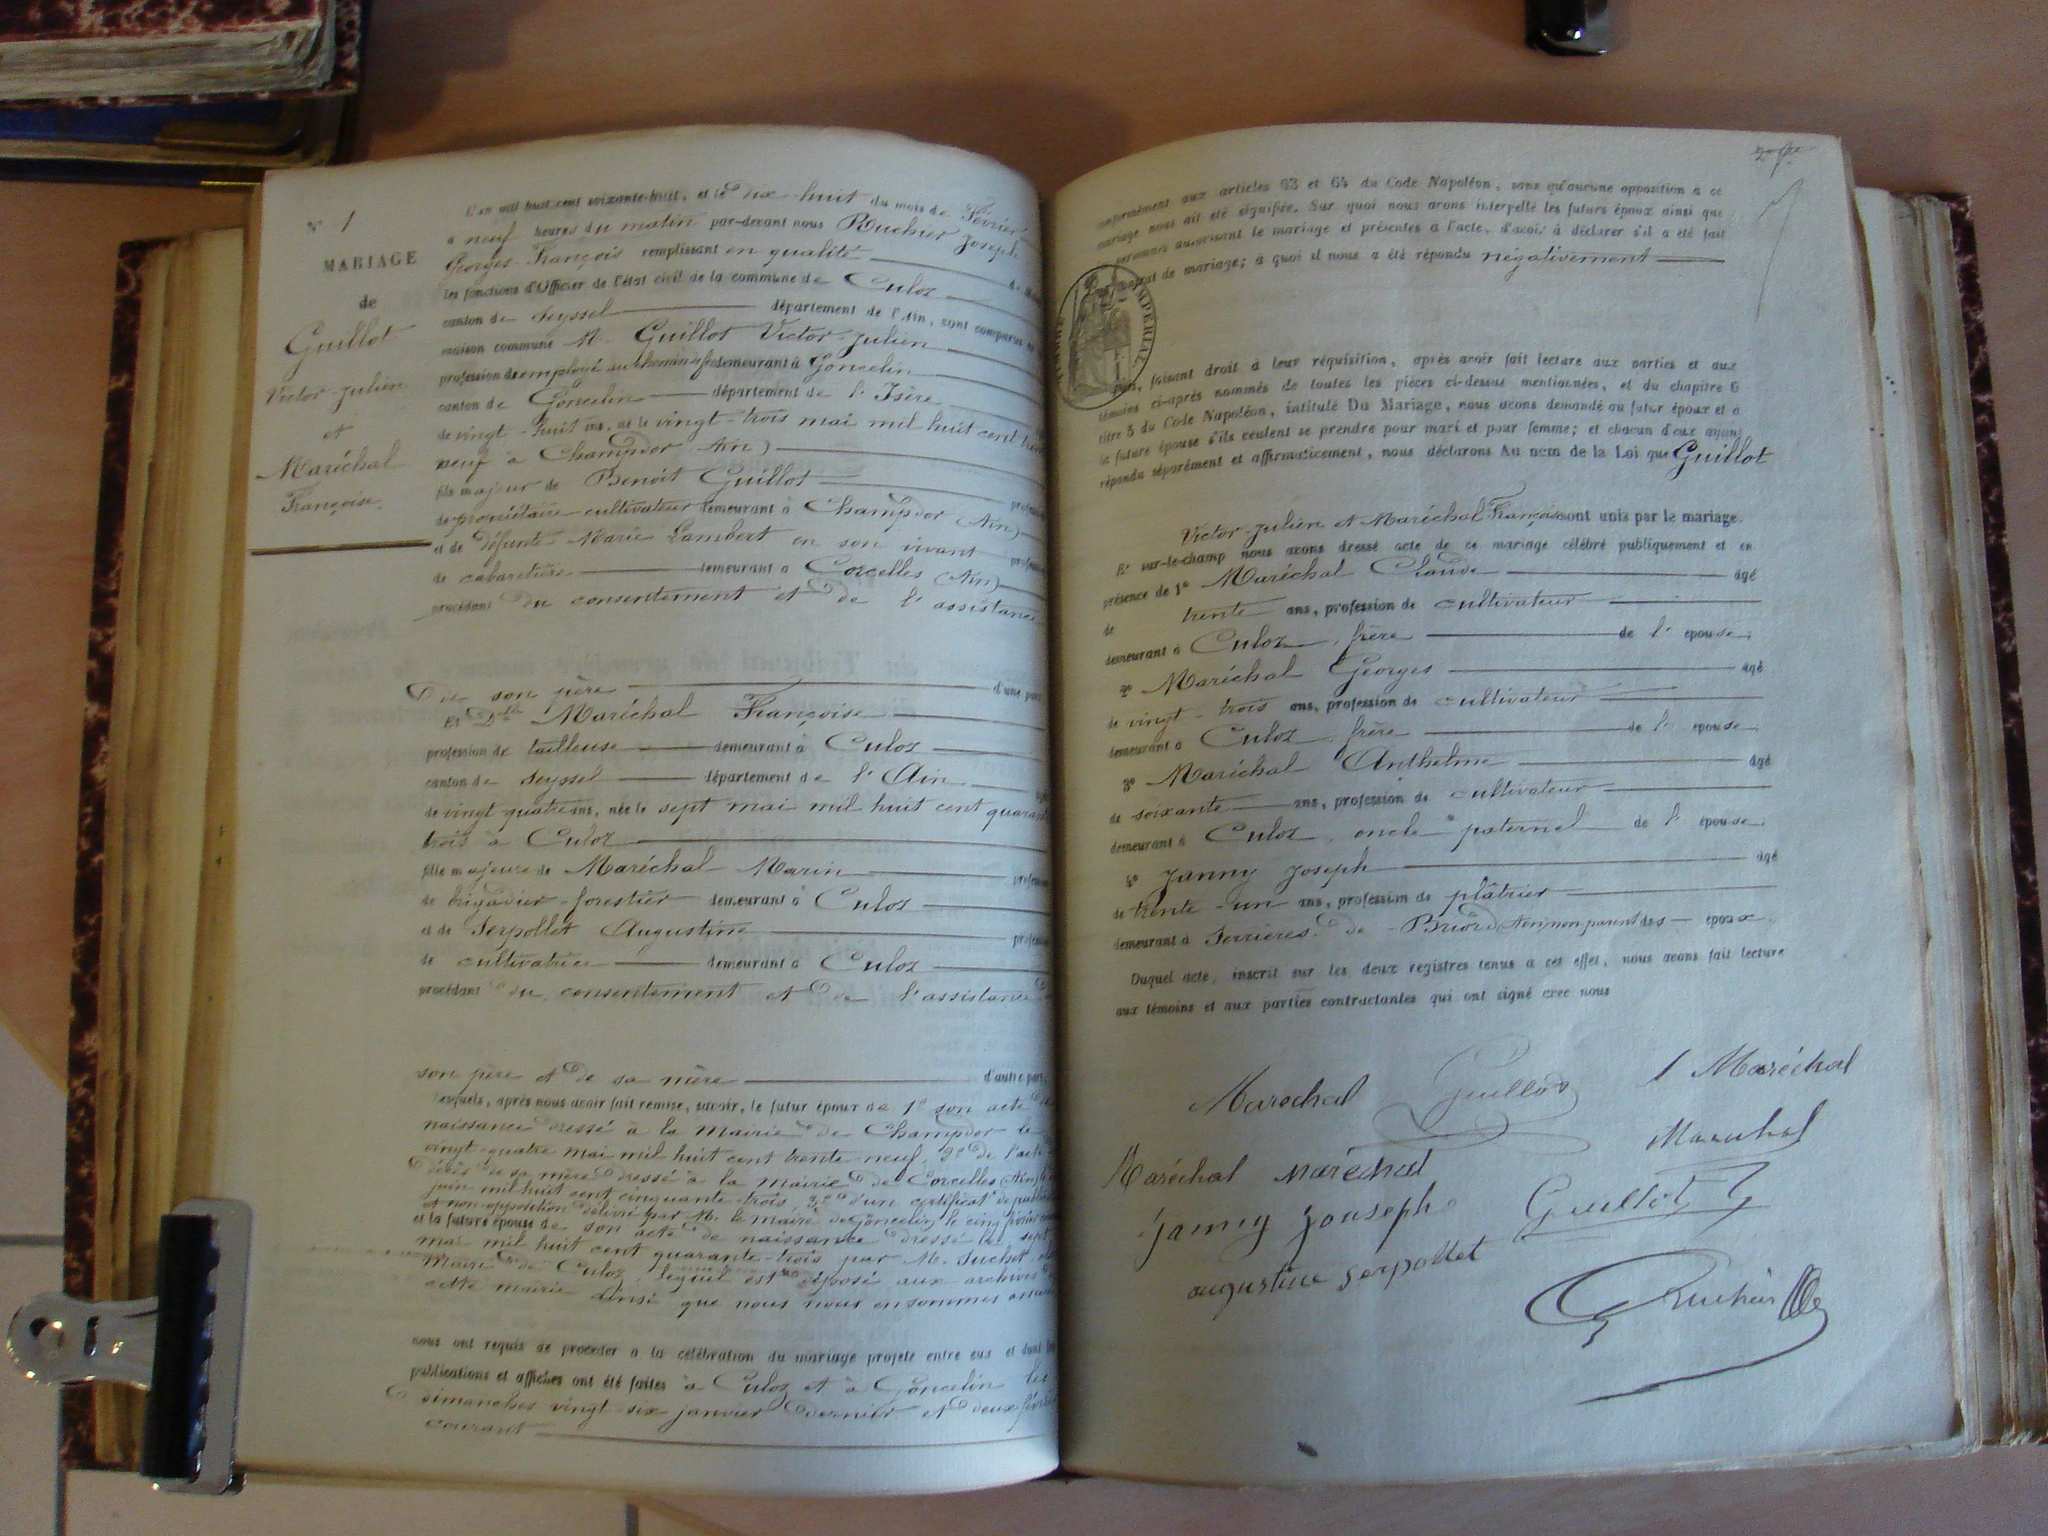 N° 1
MARIAGE
de
Guillot
Victor-Julien
et
Maréchal
Françoise.
L'an mil huit cent soixante-huit, et le dix-huit du mois de Février
a neuf heures du matin par-devant nous Ruchier Joseph
Georges-François remplissant en qualité
les fonctions d'Officier de l'état civil de la commune de Culoz
canton de Seyssel département de l'Ain, sont comparus
maison commune M. Guillot Victor-Julien
profession de employé au chemin de fer demeurant à Goncelin
canton de Goncelin département de l'Isère
de vingt-huit ans, né le vingt-trois mai mil huit cent trente
neuf à Champdor (Ain)
fils majeur de Benoit Guillot profession
de propriétaire-cultivateur demeurant à Champdor (Ain)
et de défunte Marie Lambert en son vivant profession
de cabaretière demeurant à Corcelles (Ain)
procédant du consentement et de l'assistance
de son père d'une part.
Et Dlle Maréchal Françoise
profession de tailleuse demeurant à Culoz
canton de Seyssel département de l'Ain
de vingt quatre ans, née le sept mai mil huit cent quarante
trois à Culoz
fille majeure de Maréchal Marin profession
de brigadier-forestier demeurant à Culoz
et de Serpollet Augustine profession
de cultivatrice demeurant à Culoz
procédant du consentement et de l'assistance de
son père et de sa mère d'autre part,
lesquels, après nous avoir fait remise, savoir, le futur époux de 1° son acte de
naissance dressé à la mairie de Champdor le
vingt-quatre mai mil huit cent trente-neuf, 2° de l'acte
décès de sa mère dressé à la mairie de Corcelles (Ain) le
juin mil huit cent cinquante-trois, 3° d'un certificat de
et non-opposition délivré par M. le maire de Goncelin, le cinq février
et la future épouse de son acte de naissance dressé le sept
mai mil huit cent quarante-trois par M. Suchet
maire de Culoz, lequel est déposé aux archives de
cette mairie ainsi que nous nous en sommes
nous ont requis de procéder a la célébration du mariage projeté entre eux et dont les
publications et affiches ont été faites à Culoz et à Goncelin les
dimanches vingt-six janvier dernier et deux février
courant
conformément aux articles 63 et 64 du Code Napoléon, sans qu'aucune opposition a ce
mariage nous ait été signifiée. Sur quoi nous avons interpellé les futurs époux ainsi que
personnes autorisant le mariage et présentes a l'acte, d'avoir à déclarer s'il a été fait
contrat de mariage; à quoi il nous a été répondu négativement
IMPÉRIAL
faisant droit à leur réquisition, après avoir fait lecture aux parties et aux
témoins ci-après nommés de toutes les pièces ci-dessus mentionnées, et du chapitre 6
titre 5 du Code Napoléon, intitulé Du Mariage, nous avons demandé au futur époux et a
la future épouse s'ils veulent se prendre pour mari et pour femme; et chacun d'eux ayant
répondu séparément et affirmativement, nous déclarons Au nom de la Loi que Guillot
Victor-Julien et Maréchal Françoise sont unis par le mariage.
Et sur-le-champ nous avons dressé acte de ce mariage célébré publiquement et en
présence de 1° Maréchal Claude âgé
de trente ans, profession de cultivateur
demeurant à Culoz, frère de l'épouse,
2° Maréchal Georges âgé
de vingt-trois ans, profession de cultivateur
demeurant à Culoz, frère de l'épouse
3° Maréchal Anthelme âgé
de soixante ans, profession de cultivateur
demeurant à Culoz, oncle paternel de l'épouse.
4° Janny Joseph âgé
de trente-un ans, profession de plâtrier
demeurant à Serrières de Briord (Ain) non parent des époux.
Duquel acte, inscrit sur les deux registres tenus à cet effet, nous avons fait lecture
aux témoins et aux parties contractantes qui ont signé avec nous
Marechal Guillot Maréchal
Maréchal Maréchal Marechal
Janny Jouseph Guillot
augustine Serpollet
Ruchier